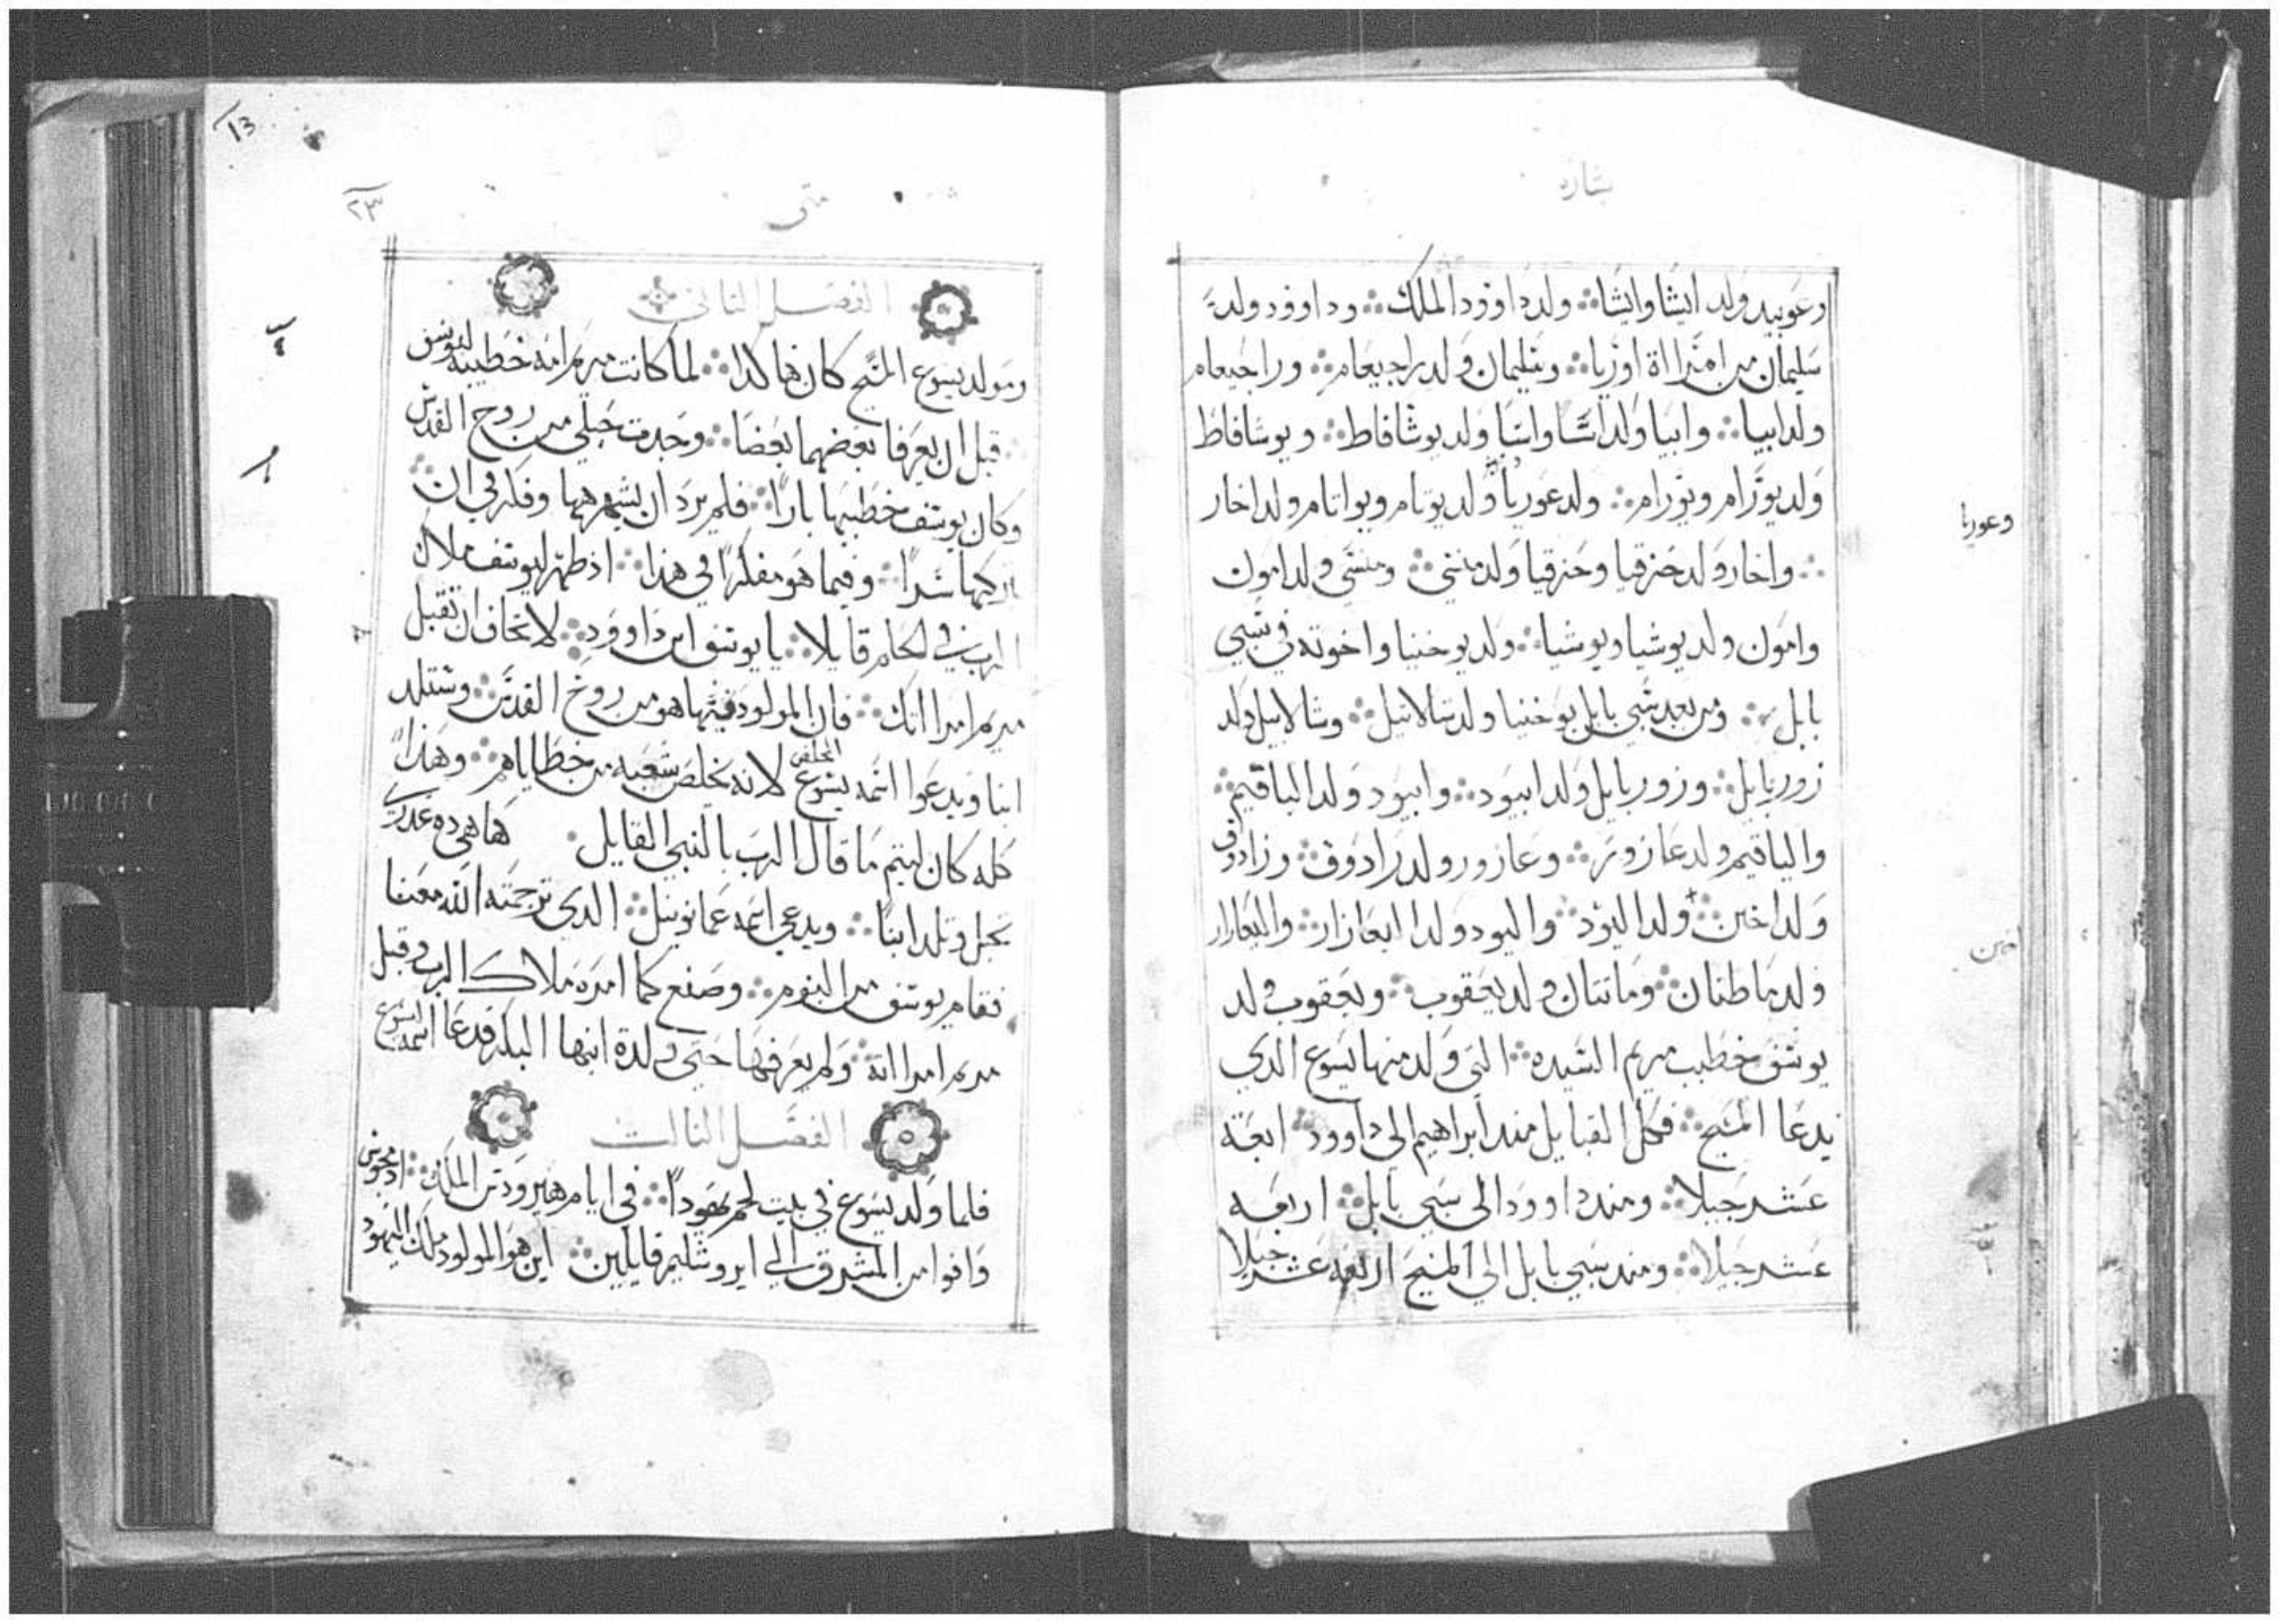 بشاره
وعوبيد ولد ايشا وايشا ولد داوود الملك وداوود ولد
سليمان من امراة اوريا وسليمان ولد راجبعام وراجبعام
ولد ابيا وابيا ولد اسا واسا ولد يوشافاط ويوشافاط
ولد يورام ويورام ولد عوريا ولد يوتام ويواتام ولد اخار
وعوريا
واخار ولد حزقيا وحزقيا ولد منشي ومنشي ولد امون
وامون ولد يوشيا ويوشيا ولد يوخنيا واخوته في سبي
بابل ومن بعد سبي بابل يوخنيا ولد شالاتيل وشالاتيل ولد
زوربابل وزوربابل ولد ابيود وابيود ولد الياقيم
والياقيم ولد عازور وعازور ولد زادوق وزادوق
ولد اخين ولد اليود واليود ولد اليعازار واليعازار
اخين
ولد ماطنان وماتتان ولد يعقوب ويعقوب ولد
يوسف خطيب مريم السيده التي ولد منها يسوع الدي
يدعا المسيح فكل القبايل مند ابراهيم الى داوود اربعة
عشر جيلا ومند داوود الى سبي بابل اربعه
عشر جيلا ومند سبي بابل الي المسيح اربعه عشر جيلا
13
متى
٢٣
الفصل الثاني
ومولد يسوع المسيح كان هاكدا لما كانت مريم امه خطيبه ليوسف
قبل ان يعرفا بعضهما بعضا وجدت حبلى من روح القدس
وكان يوسف خطيبها بارا فلم يرد ان يشهرها وفكر في ان
يتركها سرا وفيما هو مفكرا في هذا اذ ظهر ليوسف ملاك
الرب في الحلم قايلا يا يوسف ابن داوود لا تخاف ان تقبل
مريم امراتك فان المولود فيها هو من روح القدس وستلد
ابنا ويدعوا اسمه يسوع المخلص لانه يخلص شعبه من خطاياهم وهذا
كله كان ليتم ما قال الرب بالنبي القايل ها هي ده عدرى
تحبل وتلد ابنا ويدعى اسمه عمانوييل الدي ترجمته الله معنا
فقام يوسف من النوم وصنع كما امره ملاك الرب وقبل
مريم امراته ولم يعرفها حتى ولدة ابنها البكر فدعا اسمه يسوع
الفصل الثالث
فلما ولد يسوع في بيت لحم يهودا في ايام هيرودس الملك اذ مجوس
وافوا من المشرق الي ايروشليم قايلين اين هو المولود ملك اليهود